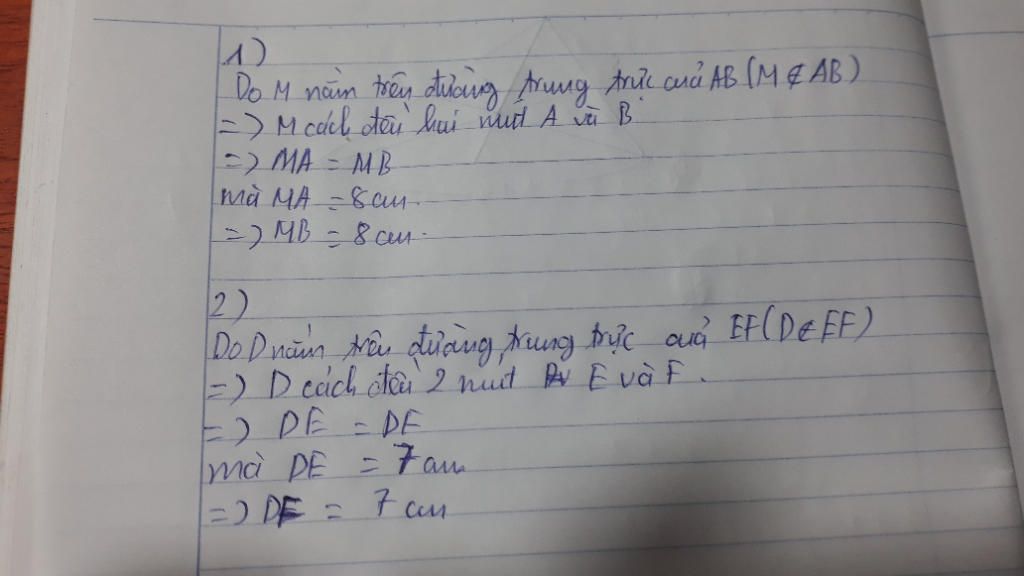 1)
Do M nằm trên đường trung trực của AB (M ∉ AB)
=> M cách đều hai mút A và B
=> MA = MB
mà MA = 8 cm.
=> MB = 8 cm.
2)
Do D nằm trên đường trung trực của EF (D ∉ EF)
=> D cách đều 2 mút E và F.
=> DE = DF
mà DE = 7 cm
=> DF = 7 cm